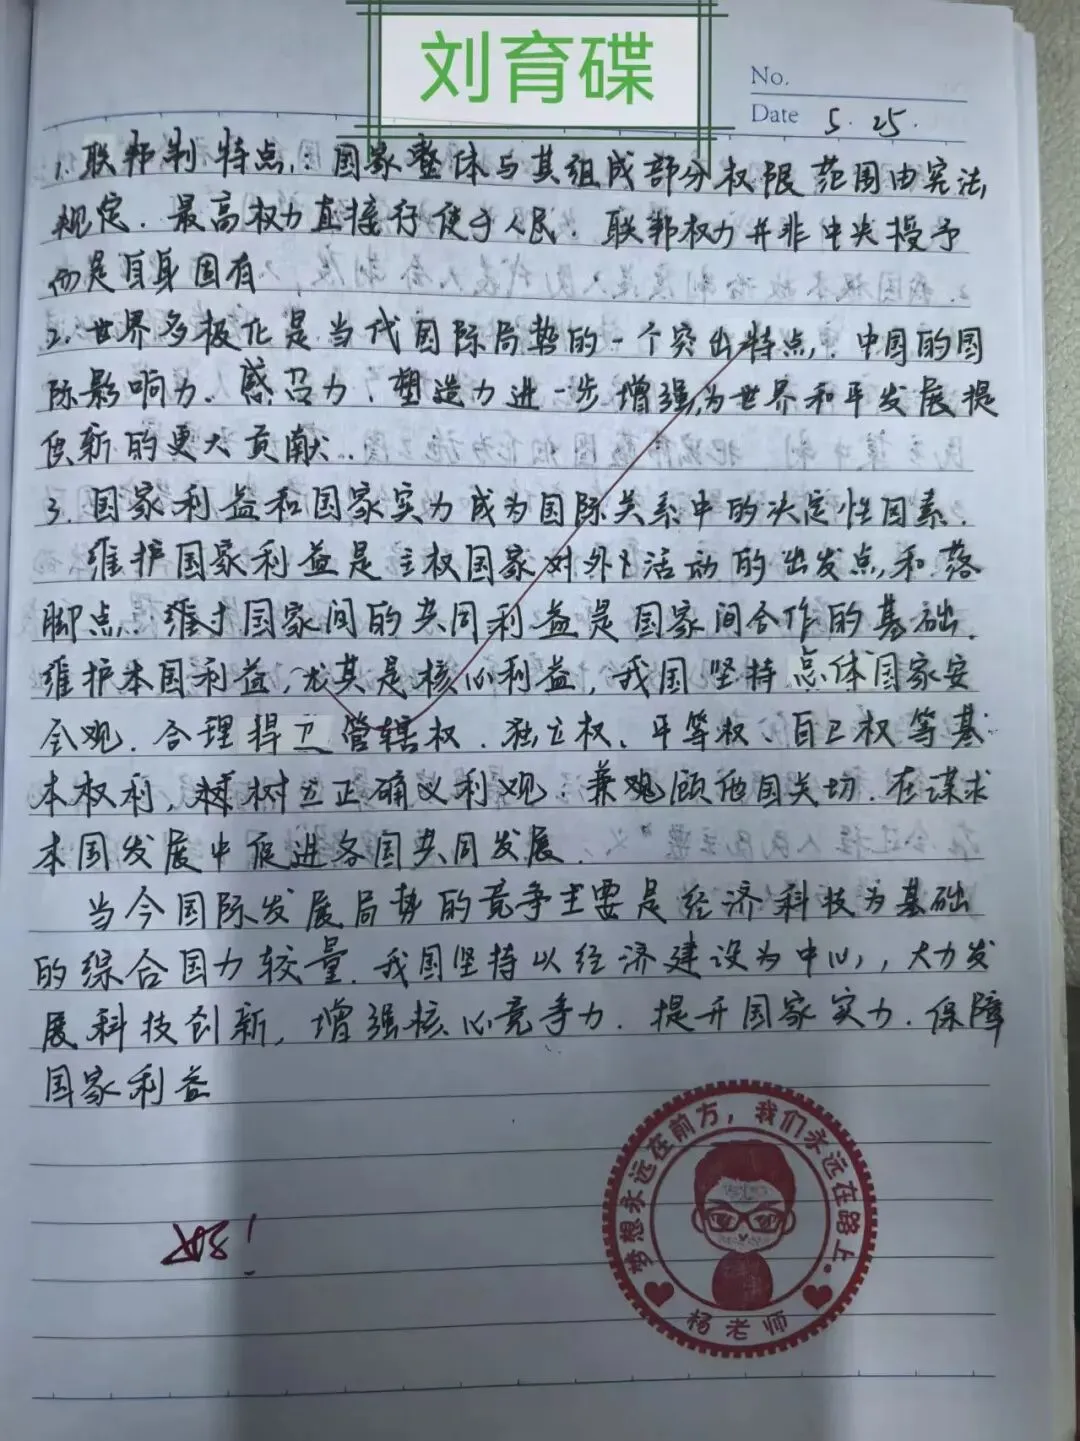 刘育碟
No.
Date 5.25.
1.联邦制特点:国家整体与其组成部分权限范围由宪法
规定.最高权力直接行使于人民.联邦权力并非中央授予
而是自身固有
2.世界多极化是当代国际局势的一个突出特点,.中国的国
际影响力、感召力、塑造力进一步增强,为世界和平发展提
供新的更大贡献..
3.国家利益和国家实力成为国际关系中的决定性因素.
维护国家利益是主权国家对外活动的出发点和落
脚点.维护国家间的共同利益是国家间合作的基础.
维护本国利益,尤其是核心利益,我国坚持总体国家安
全观.合理捍卫管辖权.独立权、平等权、自卫权等基
本权利,树立正确义利观.兼顾他国关切.在谋求
本国发展中促进各国共同发展.
当今国际发展局势的竞争主要是经济科技为基础
的综合国力较量.我国坚持以经济建设为中心,大力发
展科技创新,增强核心竞争力.提升国家实力.保障
国家利益
梦想永远在前方,我们永远在路上。
杨老师